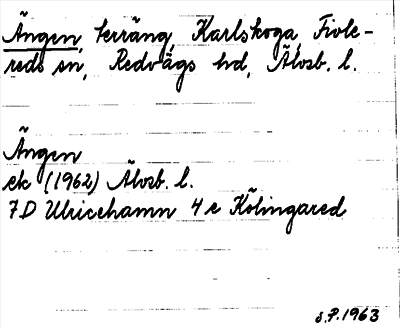 Ängen, terräng, Karlskoga, Fivle-
reds sn, Redvägs hd, Älvsb. l.
Ängen
ek (1962) Älvsb. l.
7D Ulricehamn 4 e Kölingared
s.7.1963